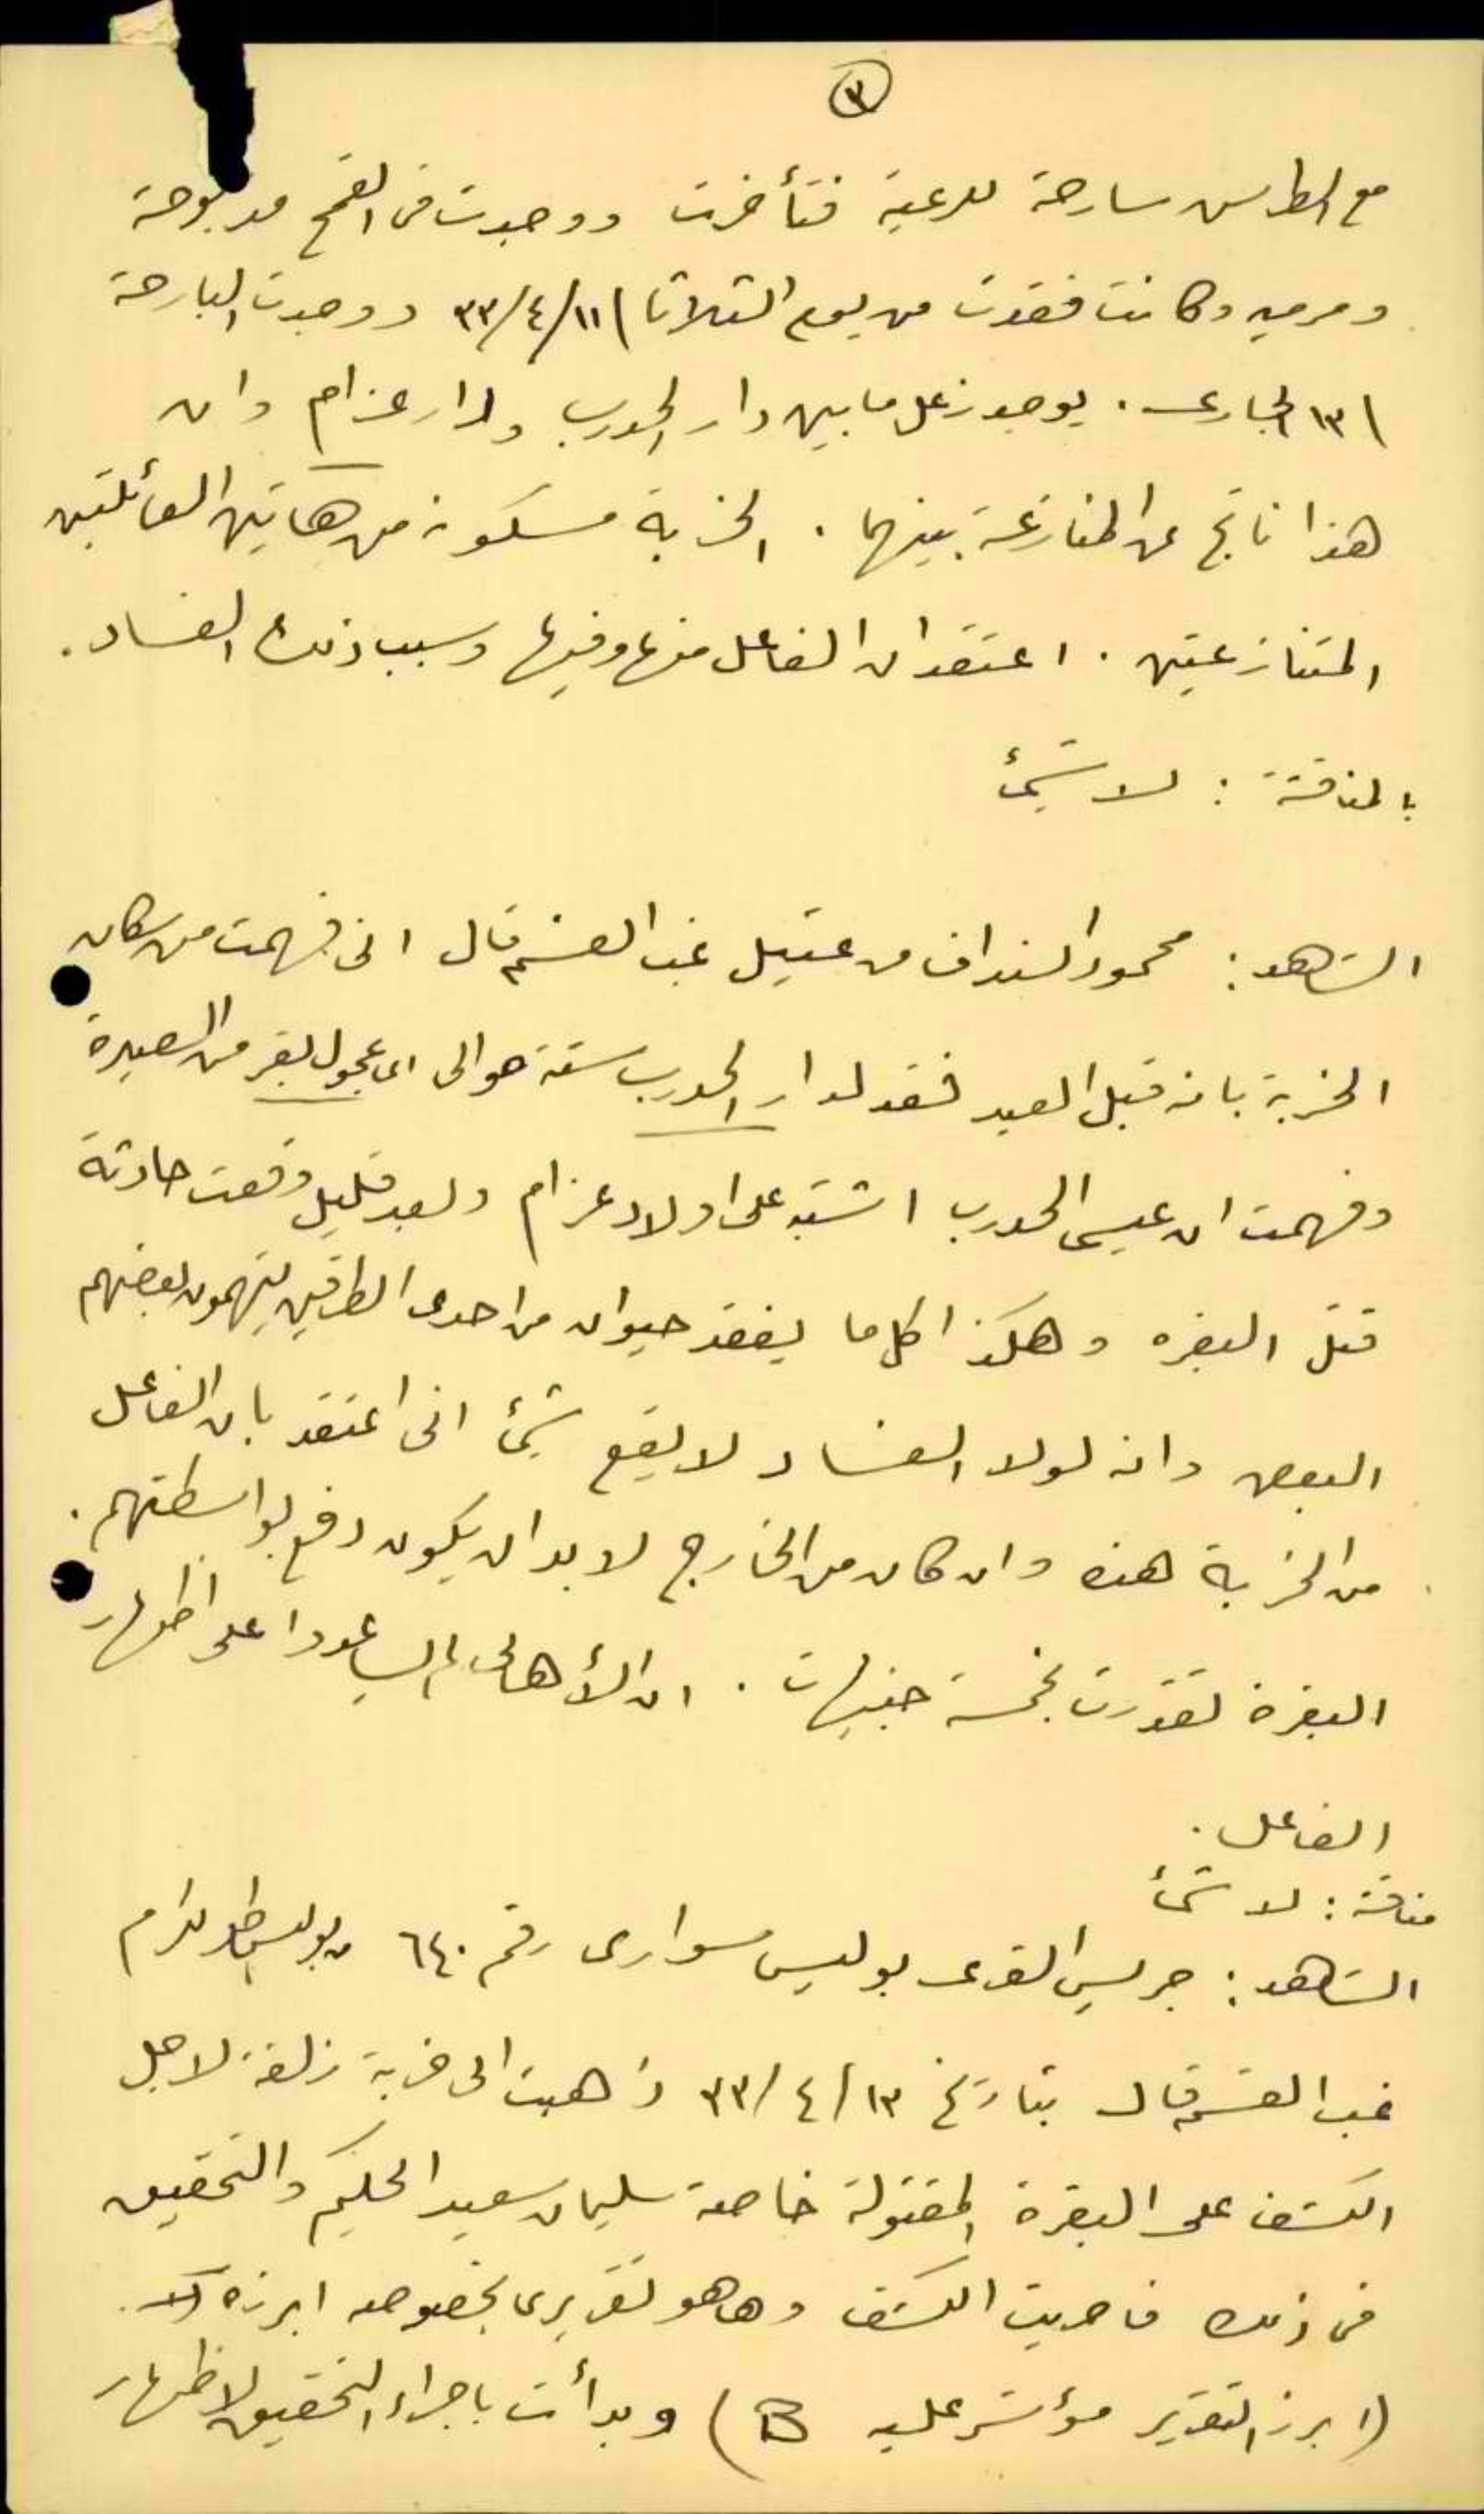 ٣
مع الطرس سارحة للرعية فتأخرت ووجدت في القمح مدبوحة
ومرميه وكانت فقدت من يوم الثلاثا ١١/٤/٣٣ ووجدت البارحة
١٣ الجارى. يوجد زعل ما بين دار الحدرب ودار عزام وان
هذا ناتج عن المنازعة بينهما. الخربة مسكونه من هاتين العائلتين
المتنازعتين. اعتقد ان الفاعل منها وفيها وسبب ذلك الفساد.
بالمناقشة: لا شيئ
الشاهد: محمود النداف من عتيل غب القسم قال انى فهمت من سكان
الخربة بانه قبل العيد فقد لدار الحدرب ستة حوالى اى عجول بقر من الصيرة
وفهمت ان عيسى الحدرب اشتبه على اولاد عزام وبعد قليل وقعت حادثة
قتل البقره وهكذا كل ما يفقد حيوان من احدى الطرفين يتهمون بعضهم
البعض وانه لولا الفساد لا يقع شيئ انى اعتقد بان الفاعل
من الخربة هذه وان كان من الخارج لا بد ان يكون دفع بواسطتهم.
البقرة تقدرت بخمسة جنيهات. ان الأهالى لم يساعدوا على اظهار
الفاعل.
مناقشة: لا شئ
الشاهد: جريس القرعى بوليس سوارى رقم ٦٤٠ بوليس طولكرم
غب القسم قال بتاريخ ١٣/٤/٣٣ ذهبت الى خربة زلفة لاجل
الكشف على البقرة المقتولة خاصة سليمان سعيد الحليم والتحقيق
فى ذلك فاجريت الكشف وها هو تقريرى بخصوصه ابرزه
(ابرز التقرير مؤشر عليه B) وبدأت باجراء التحقيق لاظهار